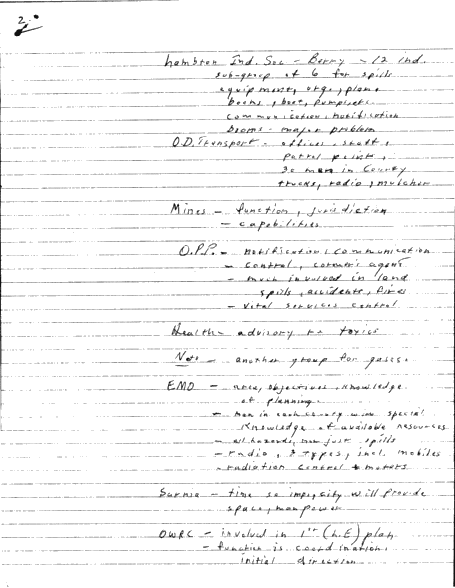 2.
Lambton Ind. Soc - Berry - 12 ind.
sub-group of 6 for spills
equipment, orge, plane
booms, boat, pumps etc.
communication, notification
booms - major problem
O.D. Transport - offices, staff,
patrol points,
30 men in County
trucks, radio, mulcher
Mines - function, jurisdiction
- capabilities
O.P.P. - notification, communication
- control, coroner's agent
- much involved in land
spills, accidents, fires
- vital services control
Health - advisory re toxics
Note - another group for gases.
EMO - area, objectives, knowledge
of planning.
- man in each county with special
knowledge of available resources
- all hazards, not just spills
- radio, 3 types, incl. mobiles
- radiation control + meters
Sarnia - time so imp, city will provide
space, manpower
OWRC - involved in 1st (L.E) plan
- function is coordination,
initial direction